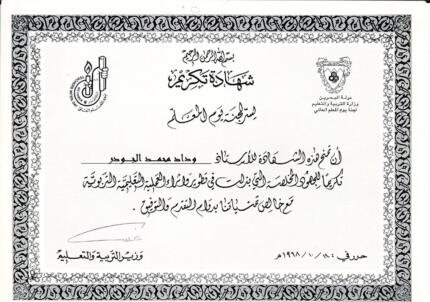 بسم الله الرحمن الرحيم
شهادة تكريم
دولة البحرين
وزارة التربية والتعليم
لجنة يوم المعلم العالمي
يسر لجنة يوم المعلم
أن تمنح هذه الشهادة للأستاذ وداد محمد الجودر
تكريمًا للجهود المخلصة التي بذلت في تطوير وإثراء العملية التعليمية التربوية
مع خالص تمنياتنا بدوام التقدم والتوفيق،
وزير التربية والتعليم
حرر في ١٩٩٨/١٠/ م